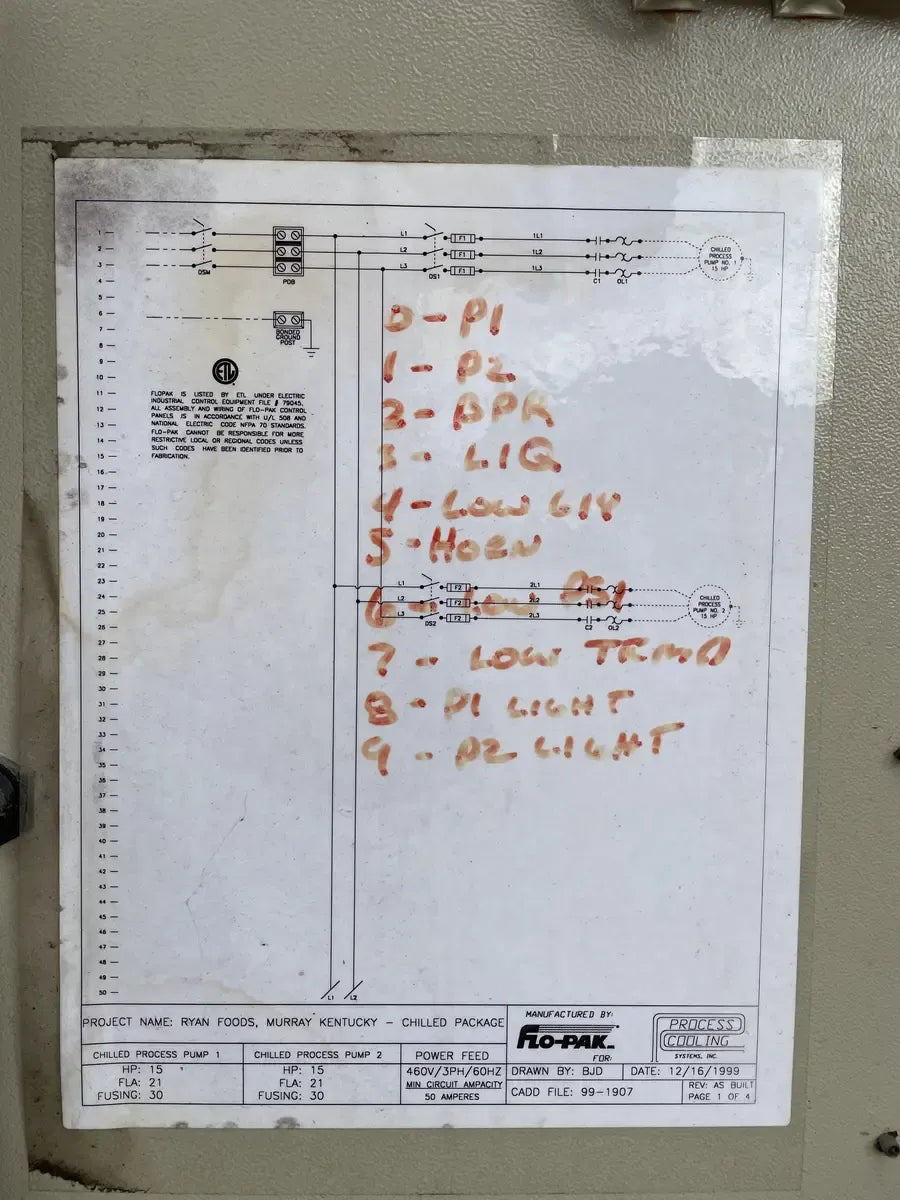 1
2
3
4
5
6
7
8
9
10
11
12
13
14
15
16
17
18
19
20
21
22
23
24
25
26
27
28
29
30
31
32
33
34
35
36
37
38
39
40
41
42
43
44
45
46
47
48
49
50
DSM
PDB
L1
L2
L3
DS1
F1
F1
F1
1L1
1L2
1L3
C1
OL1
CHILLED
PROCESS
PUMP NO. 1
15 HP
BONDED
GROUND
POST
ETL
FLOPAK IS LISTED BY ETL UNDER ELECTRIC
INDUSTRIAL CONTROL EQUIPMENT FILE # 79045.
ALL ASSEMBLY AND WIRING OF FLO-PAK CONTROL
PANELS IS IN ACCORDANCE WITH U/L 508 AND
NATIONAL ELECTRIC CODE NFPA 70 STANDARDS.
FLO-PAK CANNOT BE RESPONSIBLE FOR MORE
RESTRICTIVE LOCAL OR REGIONAL CODES UNLESS
SUCH CODES HAVE BEEN IDENTIFIED PRIOR TO
FABRICATION.
0 - P1
1 - P2
2 - BPR
3 - LIQ
4 - LOW
5 - HORN
6 - LOW
7 - LOW
8 - P1 LIGHT
9 - P2 LIGHT
L1
L2
L3
DS2
F2
F2
F2
2L1
2L2
2L3
C2
OL2
CHILLED
PROCESS
PUMP NO. 2
15 HP
L1
L2
PROJECT NAME: RYAN FOODS, MURRAY KENTUCKY - CHILLED PACKAGE
CHILLED PROCESS PUMP 1
HP: 15
FLA: 21
FUSING: 30
CHILLED PROCESS PUMP 2
HP: 15
FLA: 21
FUSING: 30
POWER FEED
460V/3PH/60HZ
MIN CIRCUIT AMPACITY
50 AMPERES
MANUFACTURED BY:
FLO-PAK
FOR:
PROCESS
COOLING
SYSTEMS, INC.
DRAWN BY: BJD
DATE: 12/16/1999
CADD FILE: 99-1907
REV: AS BUILT
PAGE 1 OF 4